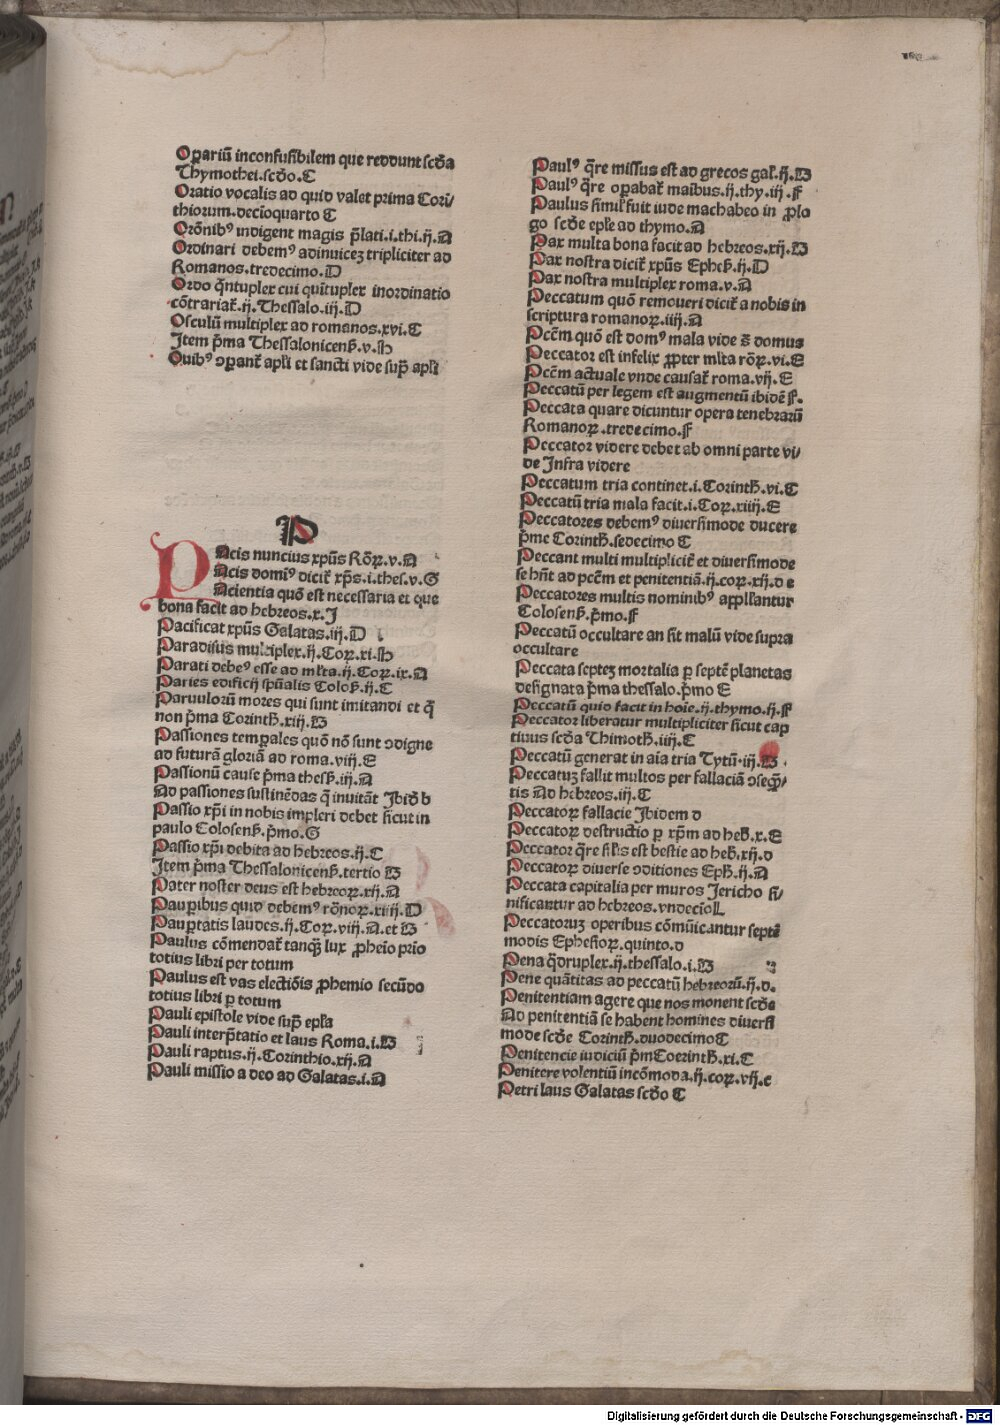 Oꝑariū inconfusibilem que reddunt scd̄a
Thymothei.scd̄o.C
Oratio vocalis ad quid valet prima Cori/
thiorum.decīoquarto C
Orōnibꝰ indigent magis p̄lati.i.thi.ij.A
Ordinari debemꝰ adinuicez tripliciter ad
Romanos.tredecimo.D
Ordo q̄ntuplex cui quītuplex inordinatio
cōtrariat̄.ij.Thessalo.iij.D
Osculū multiplex ad romanos.xvi.C
Item p̄ma Thessalonicens̄.v.H
Quibꝰ ↄꝑant̄ apl̄i et sancti vide sup̄ apl̄i
P
PAcis nuncius xp̄us Rōꝝ.v.A
Acis domīꝰ dicit̄ xp̄s.i.thes.v.G
Acientia quō est necessaria et que
bona facit ad hebreos.x.I
Pacificat xp̄us Galatas.iij.D
Paradisus multiplex.ij.Coꝝ.xi.H
Parati debeꝰ esse ad ml̄ta.ij.Coꝝ.ix.A
Paries edificij sp̄ualis Colos̄.ij.C
Paruulorū mores qui sunt imitandi et q̄
non p̄ma Corinth̄.xiij.B
Passiones temꝑales quō nō sunt ↄdigne
ad futurā gloriā ad roma.viij.E
Passionū cause p̄ma thess̄.iij.A
Ad passiones sustinēdas q̄ inuitāt Ibid̄ b
Passio xp̄i in nobis impleri debet sicut in
paulo Colosens̄.p̄mo.G
Passio xp̄i debita ad hebreos.ij.C
Item p̄ma Thessalonicens̄.tertio B
Pater noster deus est hebreoꝝ.xij.A
Pauꝑibus quid debemꝰ rōnoꝝ.xiiij.D
Pauꝑtatis laudes.ij.Coꝝ.viij.A.et B
Paulus cōmendat̄ tanqȝ lux ꝓheīo prīo
totius libri per totum
Paulus est vas electiōis ꝓhemio secūdo
totius libri ꝑ totum
Pauli epistole vide sup̄ epl̄a
Pauli interp̄tatio et laus Roma.i.B
Pauli raptus.ij.Corinthio.xij.A
Pauli missio a deo ad Galatas.i.A
Paulꝰ q̄re missus est ad grecos gal̄.ij.B
Paulꝰ q̄re oꝑabat̄ maībus.ij.thy.iij.F
Paulus simil̄ fuit iude machabeo in ꝓlo
go scd̄e epl̄e ad thymo.A
Pax multa bona facit ad hebreos.xij.B
Pax nostra dicit̄ xp̄us Ephes̄.ij.D
Pax nostra multiplex roma.v.A
Peccatum quō remoueri dicit̄ a nobis in
scriptura romanoꝝ.iiij.A
Pcc̄m quō est domꝰ mala vide s̄ domus
Peccator est infelix ꝓpter ml̄ta rōꝝ.vi.E
Pcc̄m actuale vnde causat̄ roma.vij.E
Peccatū per legem est augmentū ibidē F.
Peccata quare dicuntur opera tenebrarū
Romanoꝝ.tredecimo.F
Peccator videre debet ab omni parte vi/
de Infra videre
Peccatum tria continet.i.Corinth̄.vi.C
Peccatū tria mala facit.i.Coꝝ.xiiij.E
Peccatores debemꝰ diuersimode ducere
p̄me Corinth̄.sedecimo C
Peccant multi multiplicit̄ et diuersimode
se hn̄t ad pcc̄m et penitentiā.ij.coꝝ.xij.d e
Peccatores multis nominibꝰ appl̄lantur
Colosens̄.p̄mo.F
Peccatū occultare an sit malū vide supra
occultare
Peccata septez mortalia ꝑ septē planetas
designata p̄ma thessalo.p̄mo E
Peccatū quid facit in hoīe.ij.thymo.ij.F
Peccator liberatur multipliciter sicut cap
tiuus scd̄a Thimoth̄.iiij.C
Peccatū generat in aīa tria Tytū.iij.B
Peccatuz fallit multos per fallaciā ↄseq̄/
tis Ad hebreos.iij.C
Peccatoꝝ fallacie Ibidem d
Peccatoꝝ destructio ꝑ xp̄m ad heb̄.x.E
Peccator q̄re sil̄is est bestie ad heb̄.xij.d
Peccatoꝝ diuerse ↄditiones Eph̄.ij.A
Peccata capitalia per muros Jericho si/
nificantur ad hebreos.vndecīo L
Peccatoruz operibus cōmūicantur septē
modis Ephesioꝝ.quinto.d
Pena q̄druplex.ij.thessalo.i.B
Pene quātitas ad peccatū hebreorū.ij.d.
Penitentiam agere que nos monent scd̄e
Ad penitentiā se habent homines diuersi
mode scd̄e Corinth̄.duodecimo C
Penitencie iudiciū p̄m Coerinth̄.xi.C
Penitere volentiū incōmoda.ij.coꝝ.vij.c
Petri laus Galatas scd̄o C
Digitalisierung gefördert durch die Deutsche Forschungsgemeinschaft - DFG